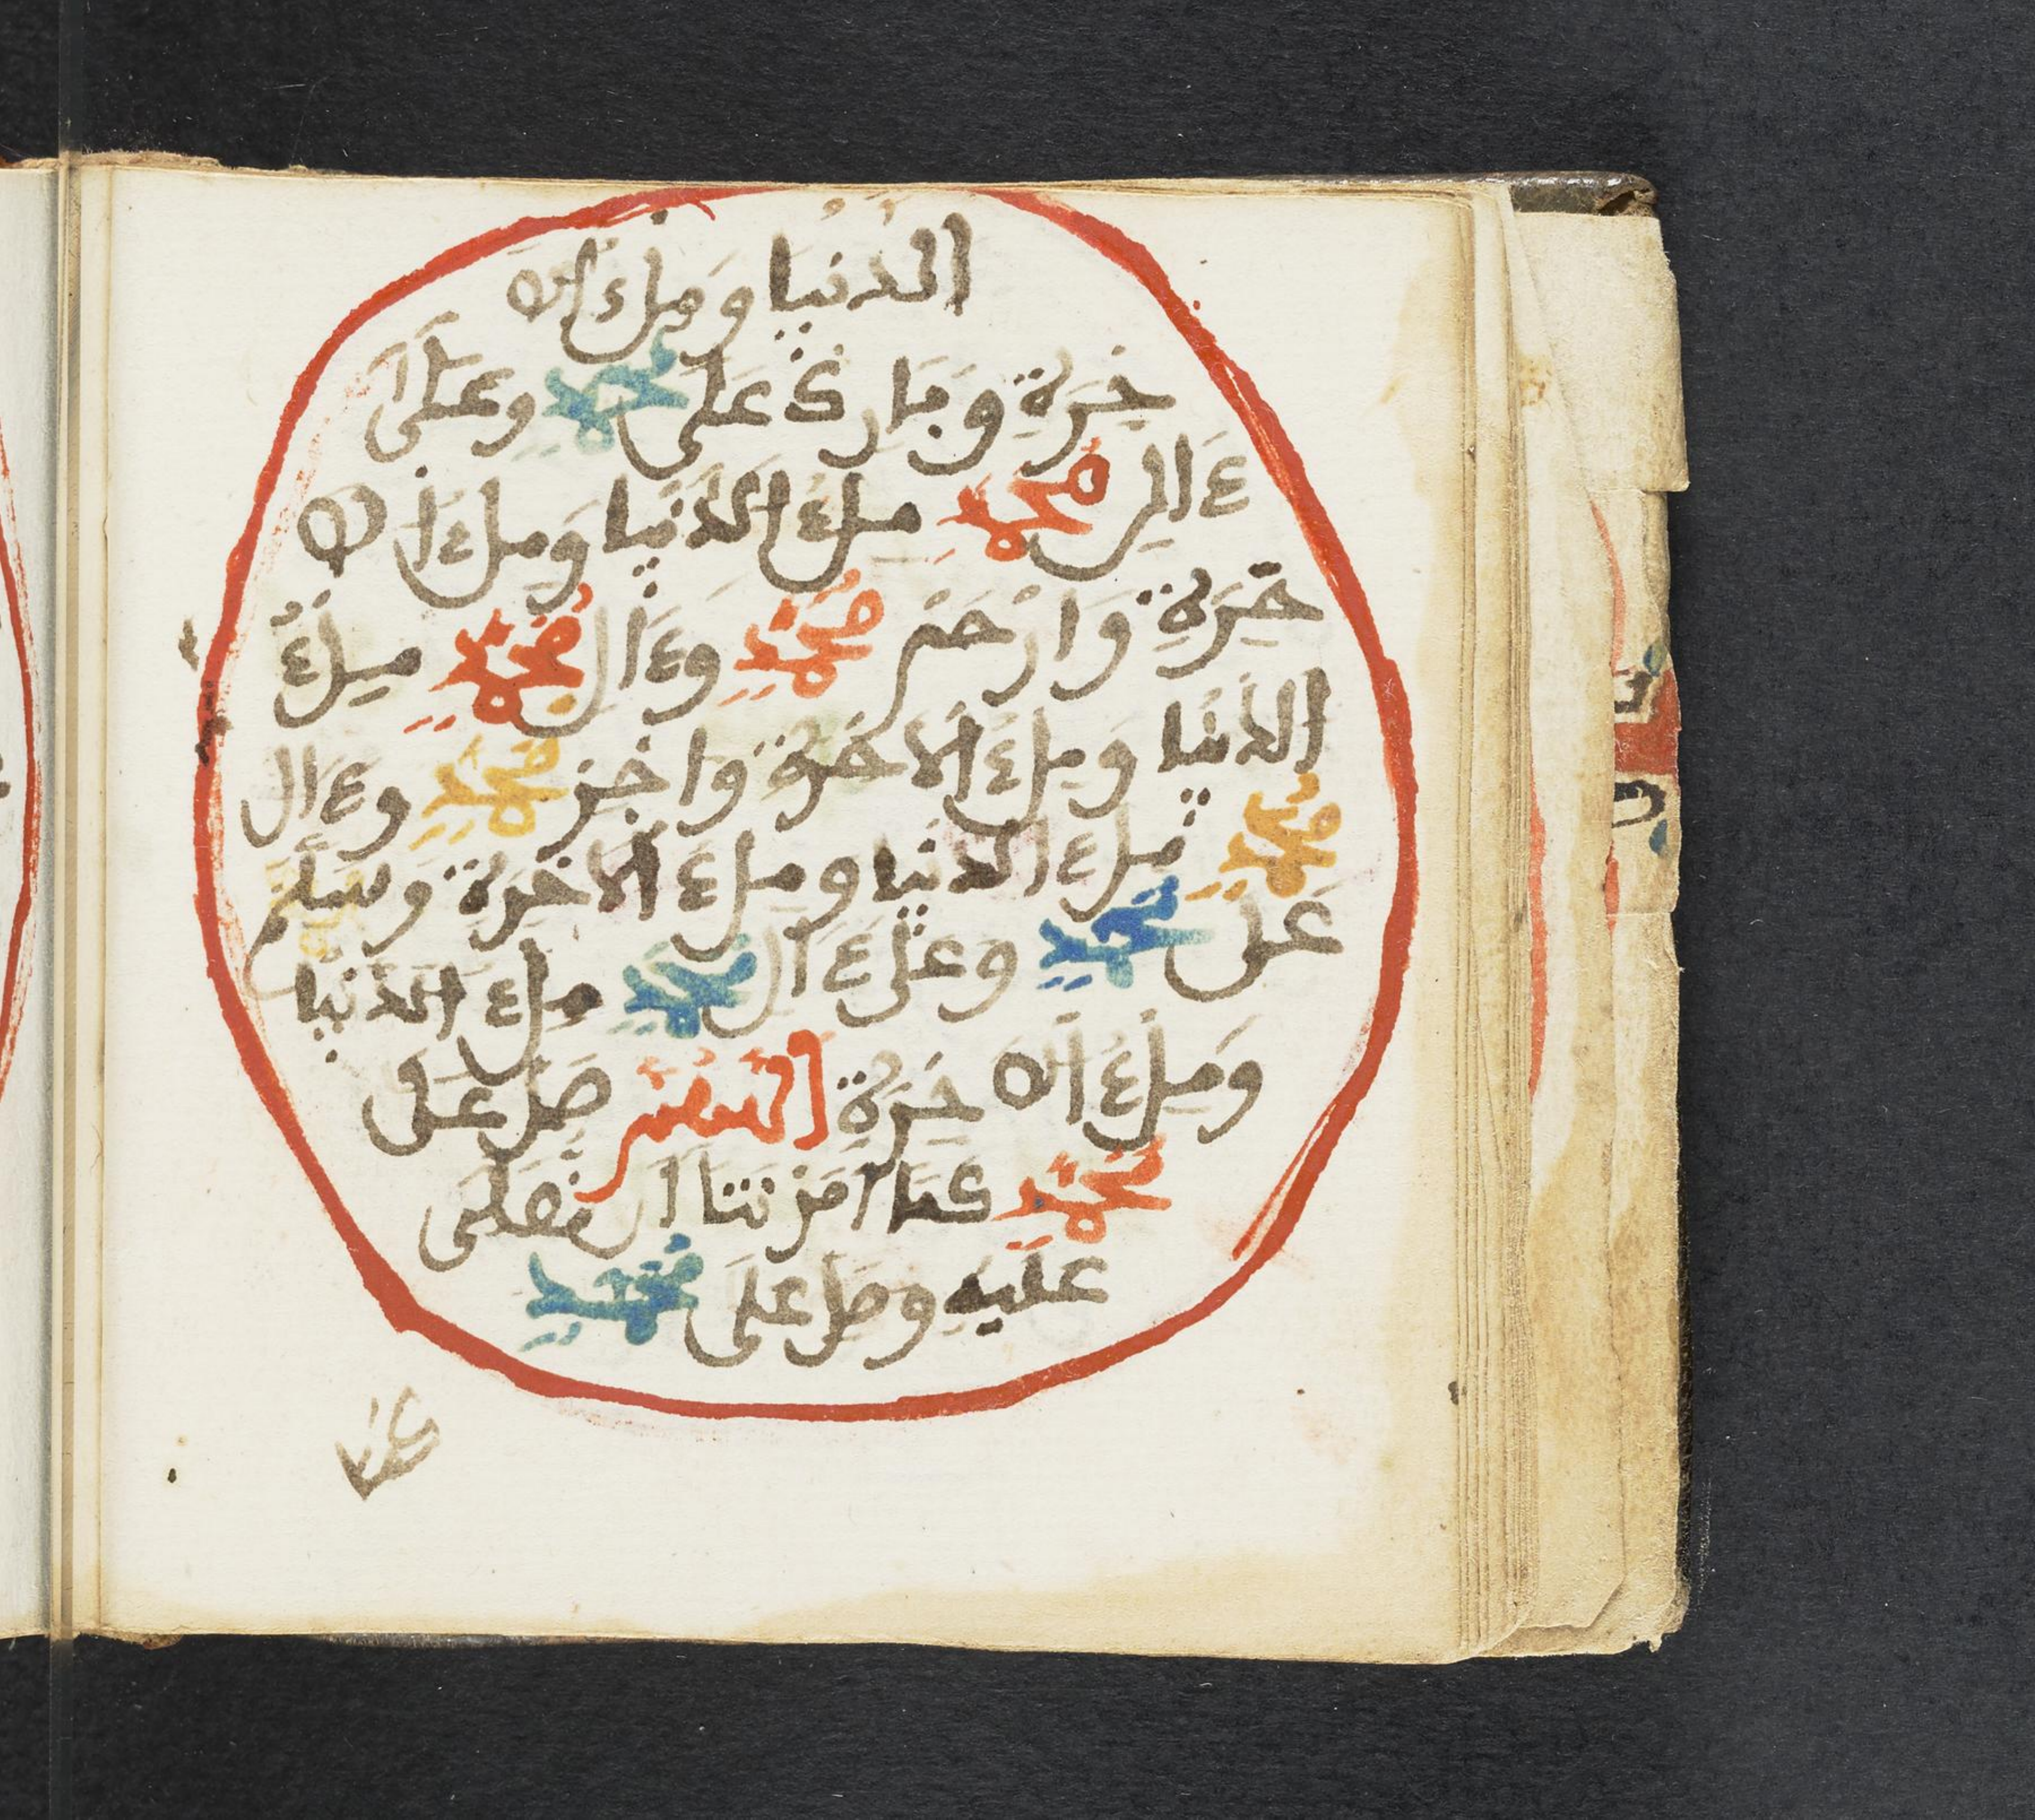 الدنيا وملء الا
خرة وبارك على محمد وعلى
ءال محمد ملء الدنيا وملء الا
خرة وارحم محمد وءال محمد ملء
الدنيا وملء الاخرة واجز محمد وءال
محمد ملء الدنيا وملء الاخرة وسلم
على محمد وعلى ءال محمد ملء الدنيا
وملء الا خرة اللهم صل على
محمد كما امرتنا ان نصلى
عليه وصل على محمد
كما